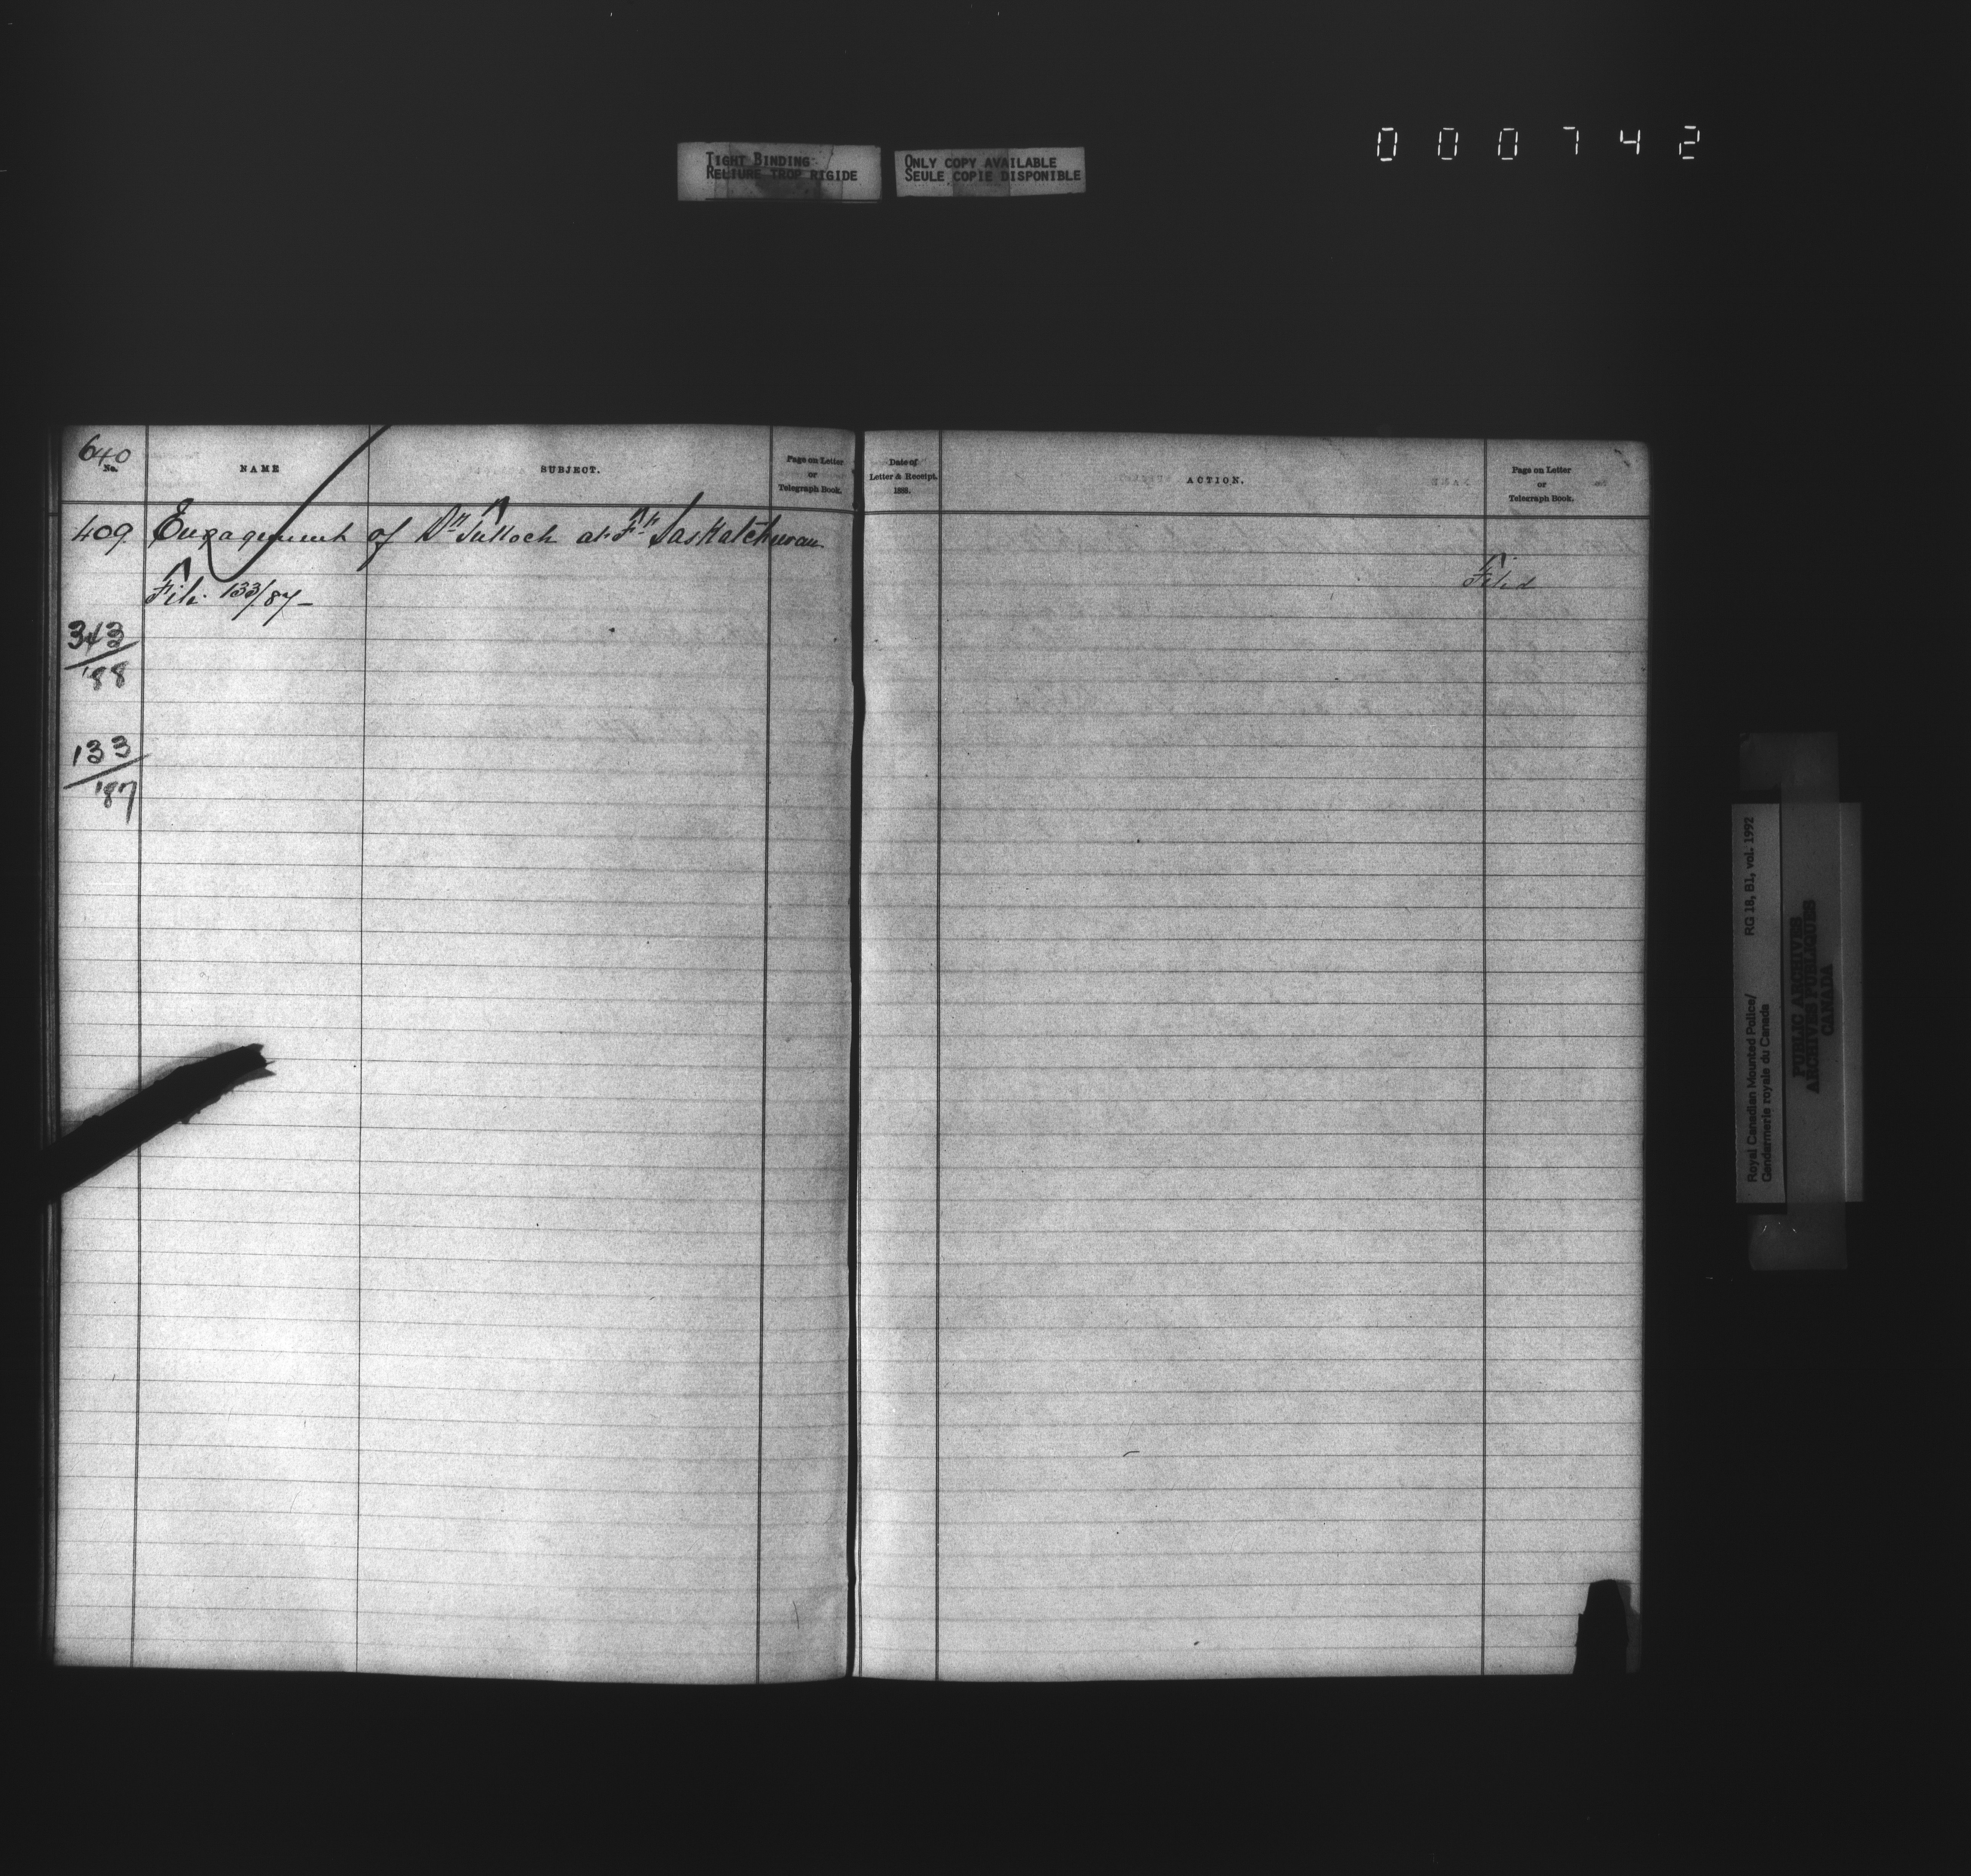 000742
TIGHT BINDING
RELIURE TROP RIGIDE
ONLY COPY AVAILABLE
SEULE COPIE DISPONIBLE
640
No.
NAME
SUBJECT.
Page on Letter
or
Telegraph Book.
Date of
Letter & Receipt.
1888.
ACTION.
Page on Letter
or
Telegraph Book.
409 Engagement of Dr Tulloch at Ft Saskatchewan
File 133/87 –
Filed
343
/'88
133
/'87
Royal Canadian Mounted Police/
Gendarmerie royale du Canada
RG 18, B1, vol. 1992
PUBLIC ARCHIVES
ARCHIVES PUBLIQUES
CANADA